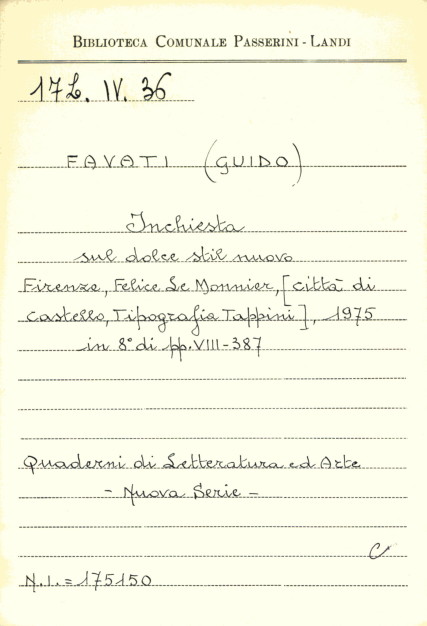 BIBLIOTECA COMUNALE PASSERINI-LANDI
17L. IV. 36
FAVATI (GUIDO)
Inchiesta
sul dolce stil nuovo
Firenze, Felice Le Monnier, [Città di
Castello, Tipografia Tappini], 1975
in 8° di pp. VIII-387
Quaderni di Letteratura ed Arte
- Nuova Serie -
C
N.I. = 175150